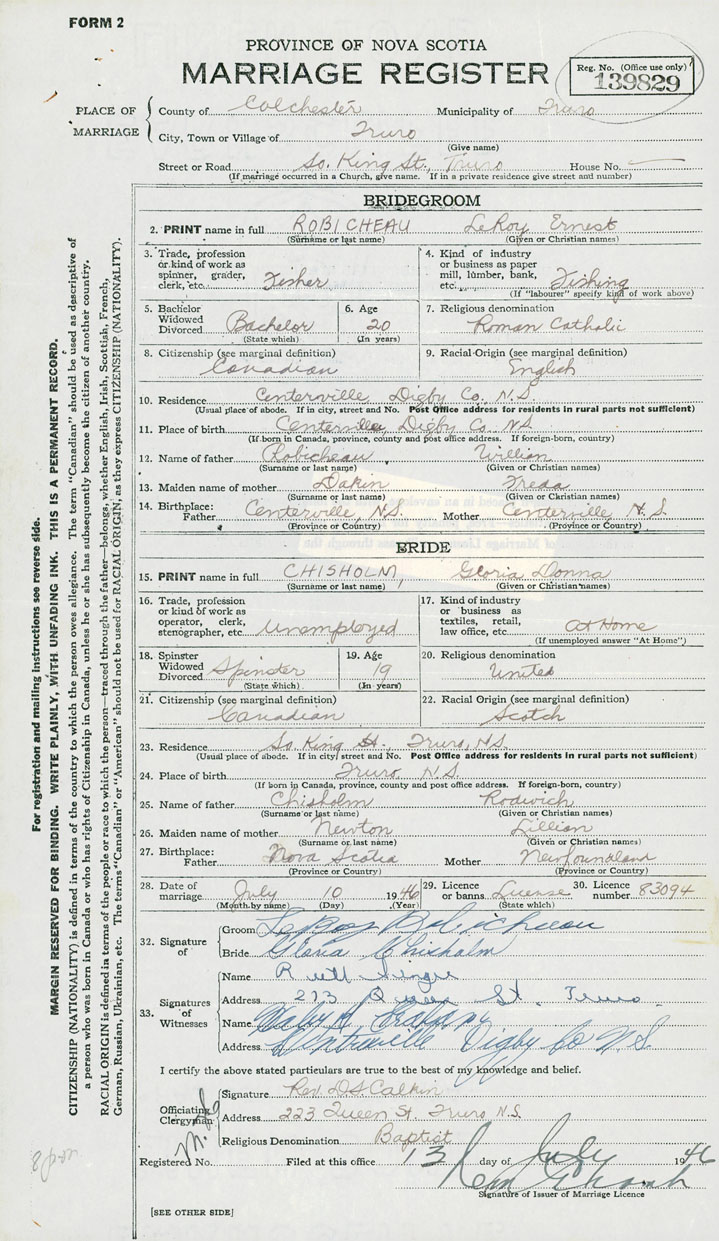 FORM 2
PROVINCE OF NOVA SCOTIA
MARRIAGE REGISTER
Reg. No. (Office use only)
139829
PLACE OF MARRIAGE
County of Colchester Municipality of Truro
City, Town or Village of Truro
(Give name)
Street or Road So. King St., Truro House No.
(If marriage occurred in a Church, give name. If in a private residence give street and number)
BRIDEGROOM
2. PRINT name in full ROBICHEAU LeRoy Ernest
(Surname or last name) (Given or Christian names)
3. Trade, profession or kind of work as spinner, grader, clerk, etc. Fisher
4. Kind of industry or business as paper mill, lumber, bank, etc. Fishing
(If "labourer" specify kind of work above)
5. Bachelor Widowed Divorced Bachelor
(State which)
6. Age 20
(In years)
7. Religious denomination
Roman Catholic
8. Citizenship (see marginal definition)
Canadian
9. Racial Origin (see marginal definition)
English
10. Residence Centerville, Digby Co. N.S.
(Usual place of abode. If in city, street and No. Post Office address for residents in rural parts not sufficient)
11. Place of birth Centerville Digby Co NS
(If born in Canada, province, county and post office address. If foreign-born, country)
12. Name of father Robicheau William
(Surname or last name) (Given or Christian names)
13. Maiden name of mother Dakin Freda
(Surname or last name) (Given or Christian names)
14. Birthplace: Father Centerville, N.S. Mother Centerville N.S.
(Province or Country) (Province or Country)
BRIDE
15. PRINT name in full CHISHOLM, Gloria Donna
(Surname or last name) (Given or Christian names)
16. Trade, profession or kind of work as operator, clerk, stenographer, etc. Unemployed
17. Kind of industry or business as textiles, retail, law office, etc. At Home
(If unemployed answer "At Home")
18. Spinster Widowed Divorced Spinster
(State which)
19. Age 19
(In years)
20. Religious denomination
United
21. Citizenship (see marginal definition)
Canadian
22. Racial Origin (see marginal definition)
Scotch
23. Residence So. King St., Truro, N.S.
(Usual place of abode. If in city street and No. Post Office address for residents in rural parts not sufficient)
24. Place of birth Truro N.S.
(If born in Canada, province, county and post office address. If foreign-born, country)
25. Name of father Chisholm Rodwich
(Surname or last name) (Given or Christian names)
26. Maiden name of mother Newton Lillian
(Surname or last name) (Given or Christian names)
27. Birthplace: Father Nova Scotia Mother Newfoundland
(Province or Country) (Province or Country)
28. Date of marriage July 10 1946
(Month by name) (Day) (Year)
29. Licence or banns License
(State which)
30. Licence number 83094
32. Signature of
Groom LeRoy Robicheau
Bride Gloria Chisholm
33. Signatures of Witnesses
Name Ruth
Address 213 Queen St. Truro
Name
Address Centreville Digby Co N.S.
I certify the above stated particulars are true to the best of my knowledge and belief.
Officiating Clergyman
Signature Rev. D.S. Calkin
Address 223 Queen St. Truro N.S.
Religious Denomination Baptist
Registered No. Filed at this office 13 day of July 1946
Signature of Issuer of Marriage Licence
[SEE OTHER SIDE]
For registration and mailing instructions see reverse side.
MARGIN RESERVED FOR BINDING. WRITE PLAINLY, WITH UNFADING INK. THIS IS A PERMANENT RECORD.
CITIZENSHIP (NATIONALITY) is defined in terms of the country to which the person owes allegiance. The term "Canadian" should be used as descriptive of
a person who was born in Canada or who has rights of Citizenship in Canada, unless he or she has subsequently become the citizen of another country.
RACIAL ORIGIN is defined in terms of the people or race to which the person—traced through the father—belongs, whether English, Irish, Scottish, French,
German, Russian, Ukrainian, etc. The terms "Canadian" or "American" should not be used for RACIAL ORIGIN, as they express CITIZENSHIP (NATIONALITY).